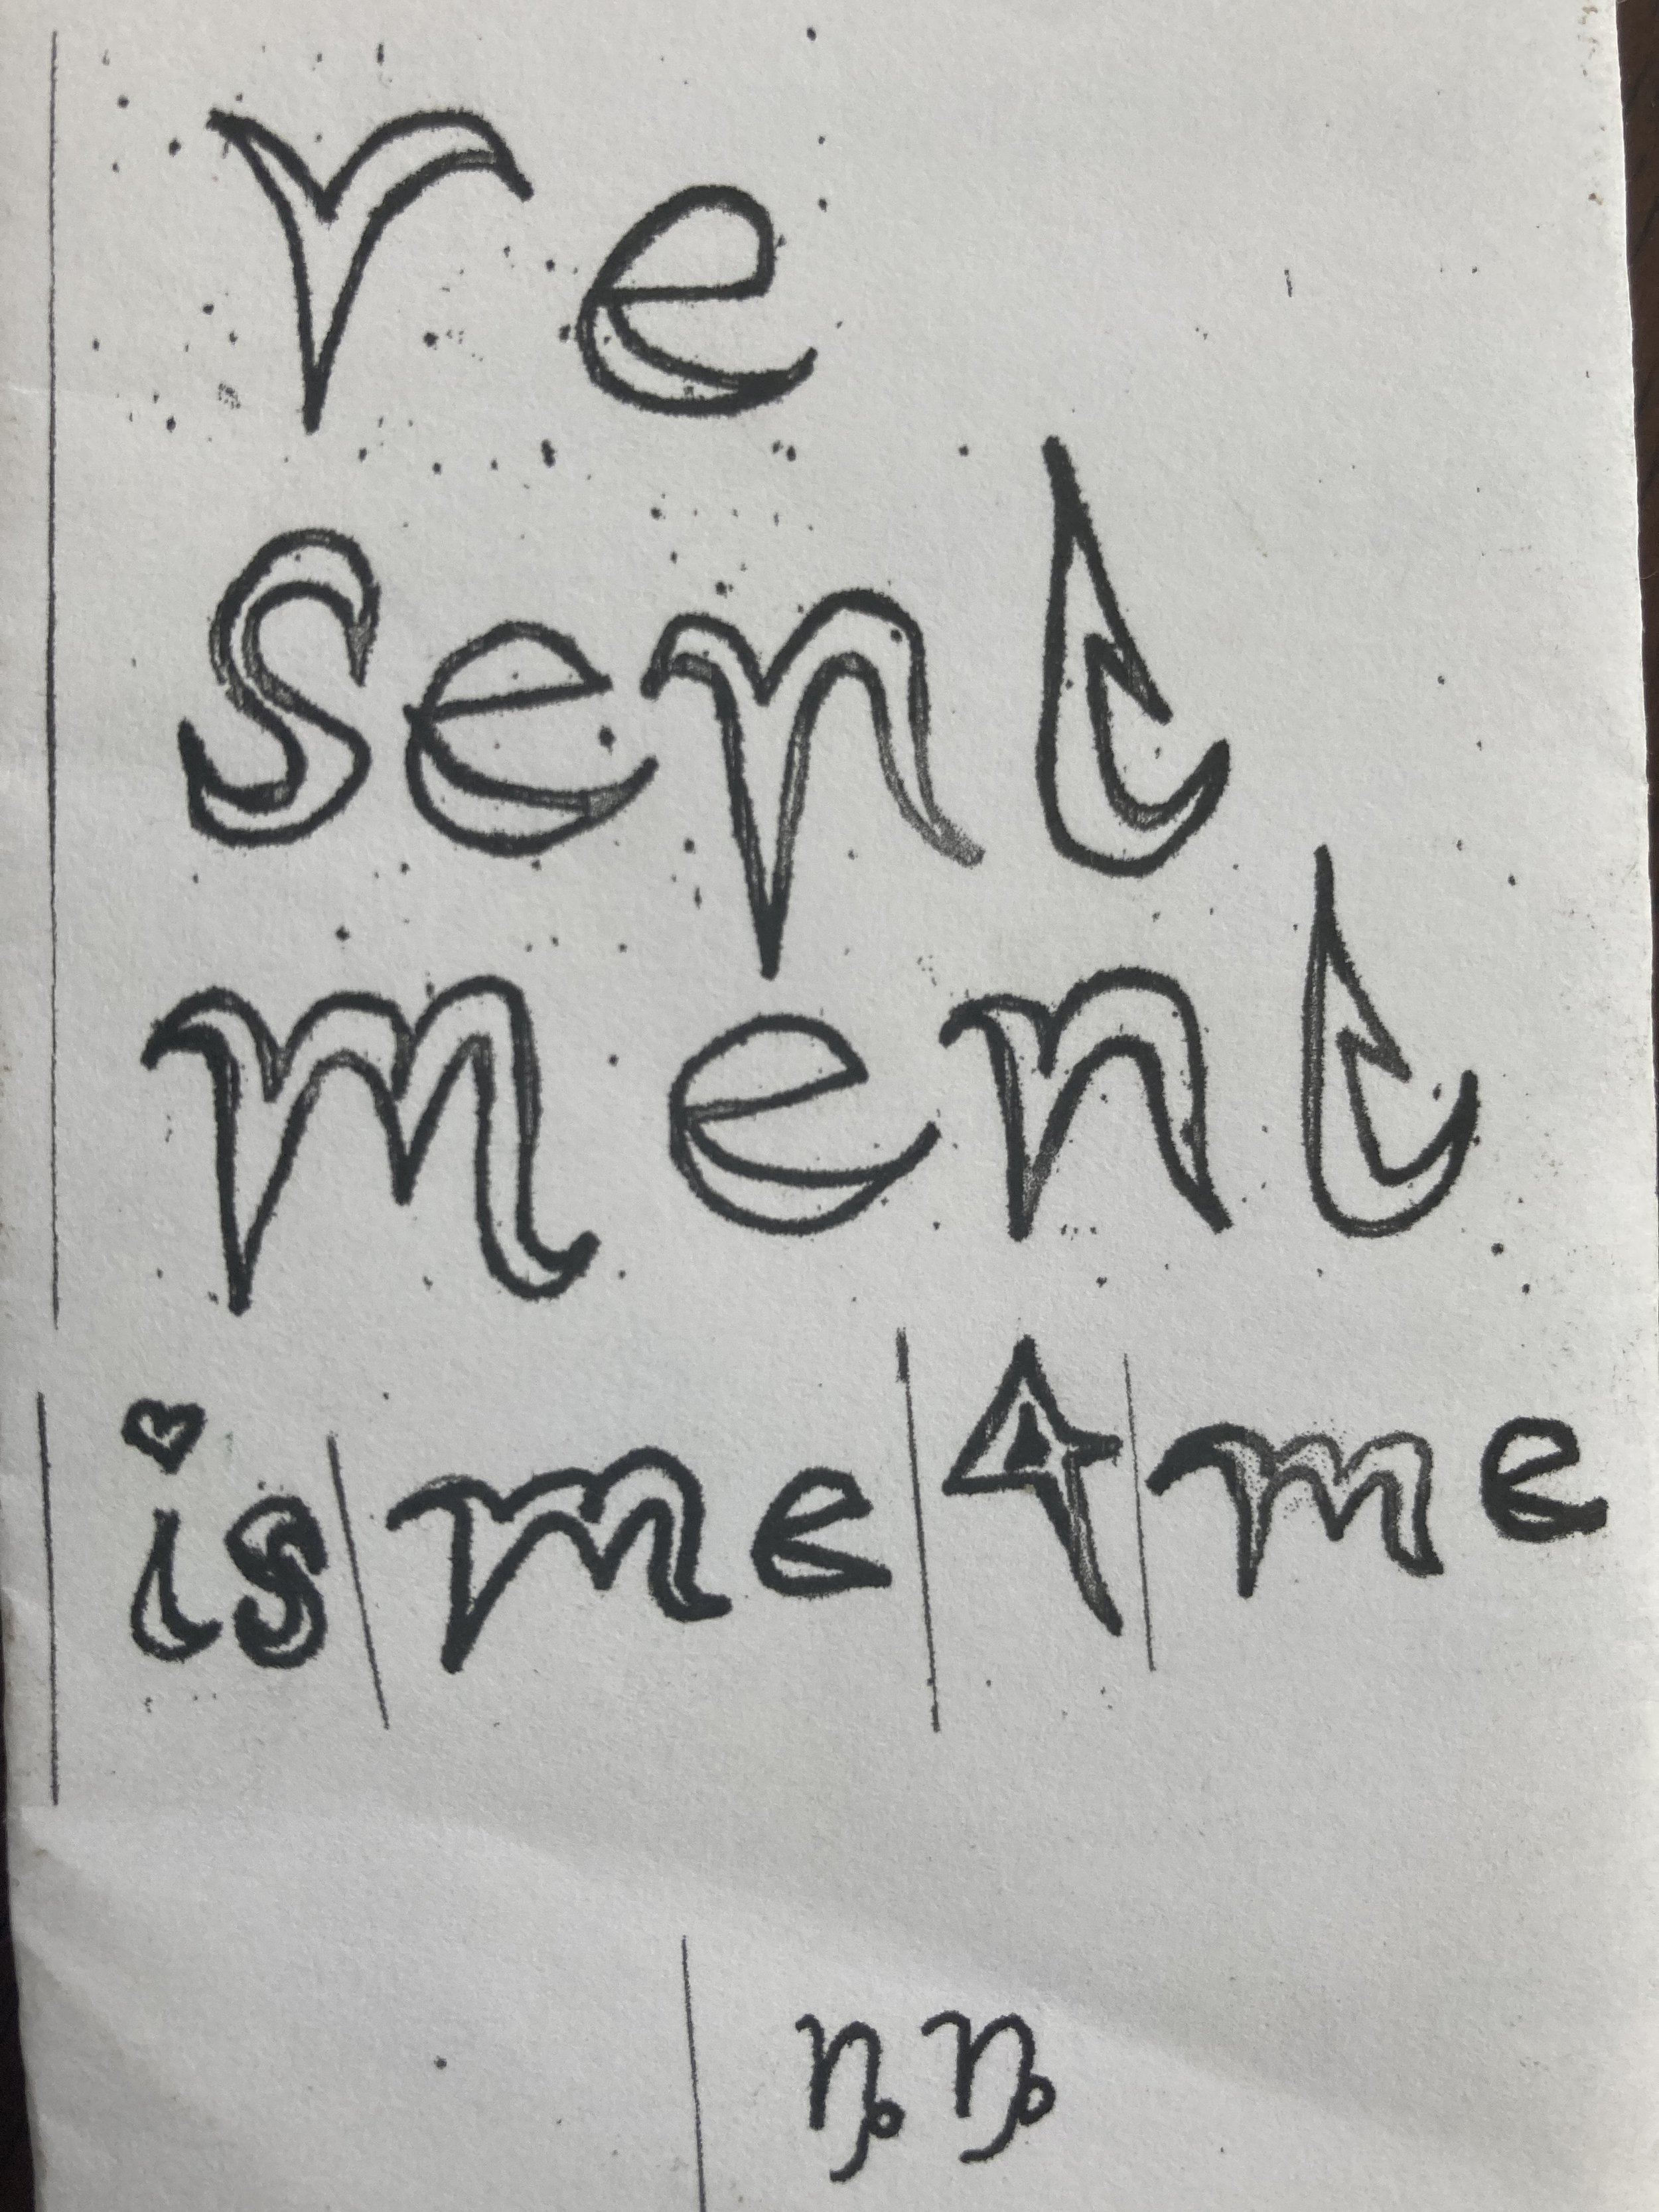 re
sent
ment
is|me|4|me
♑♑